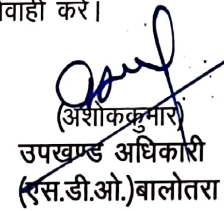 वाही करे।
(अशोककुमार)
उपखण्ड अधिकारी
(एस.डी.ओ.)बालोतरा